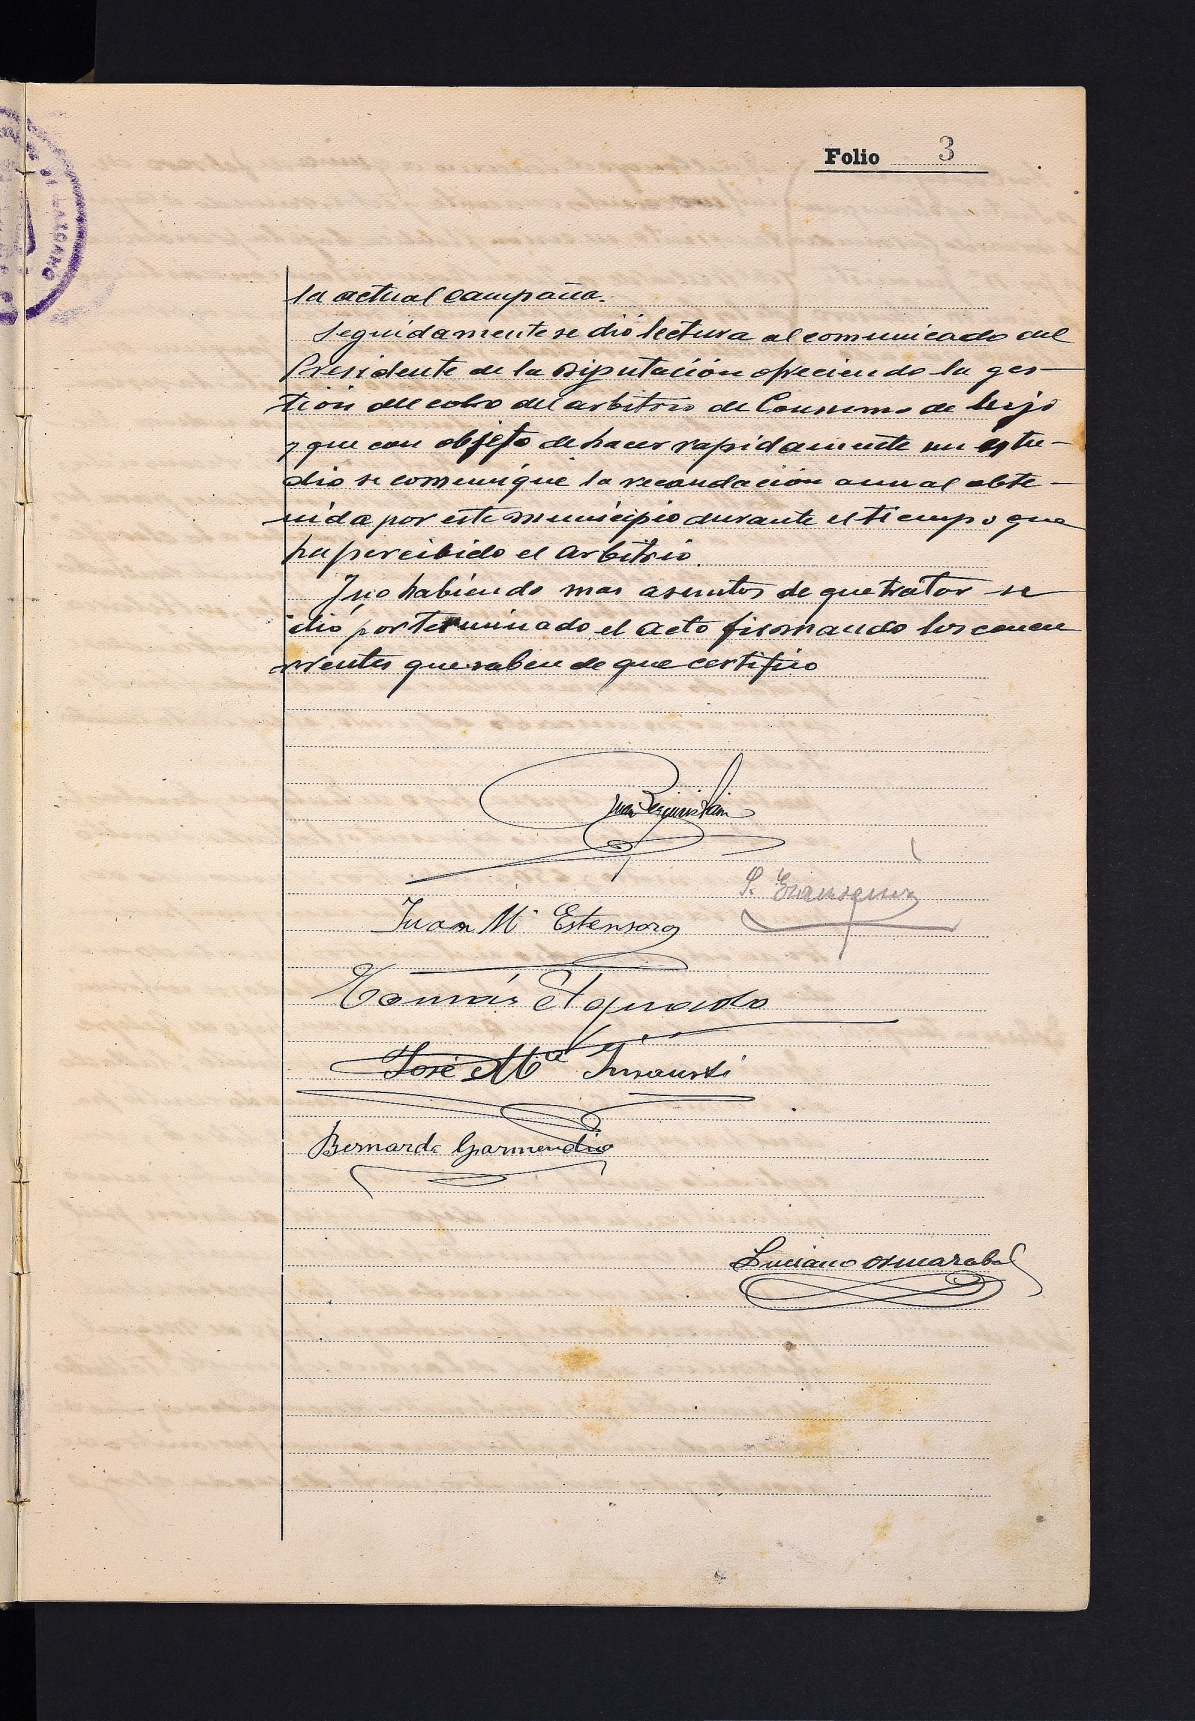 Folio 3
la actual campaña.
Seguidamente se dió lectura al comunicado del
Presidente de la Diputación ofreciendo la ges-
tión del cobro del arbitrio de Consumo de lujo
y que con objeto de hacer rapidamente un estu-
dio se comunique la recaudación anual obte-
nida por este municipio durante el tiempo que
ha percibido el arbitrio.
Y no habiendo mas asuntos de que tratar se
dió por terminado el acto firmando los concu
rrentes que saben de que certifico
Juan
Juan Mª Estensoro
Tomás Elgueado
José Mª Insausti
Bernardo Garmendia
Luciano